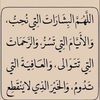 اللَّهُمَّ البِشَارَاتَ الَّتِي نُحِبُّ،
وَالأَيَّامَ الَّتِي تَسُرُّ، وَالرَّحَمَاتِ
الَّتِي تَتَوَالَى، وَالعَافِيَةَ الَّتِي
تَدُومُ، وَالخَيْرَ الَّذِي لَا يَنْقَطِعُ